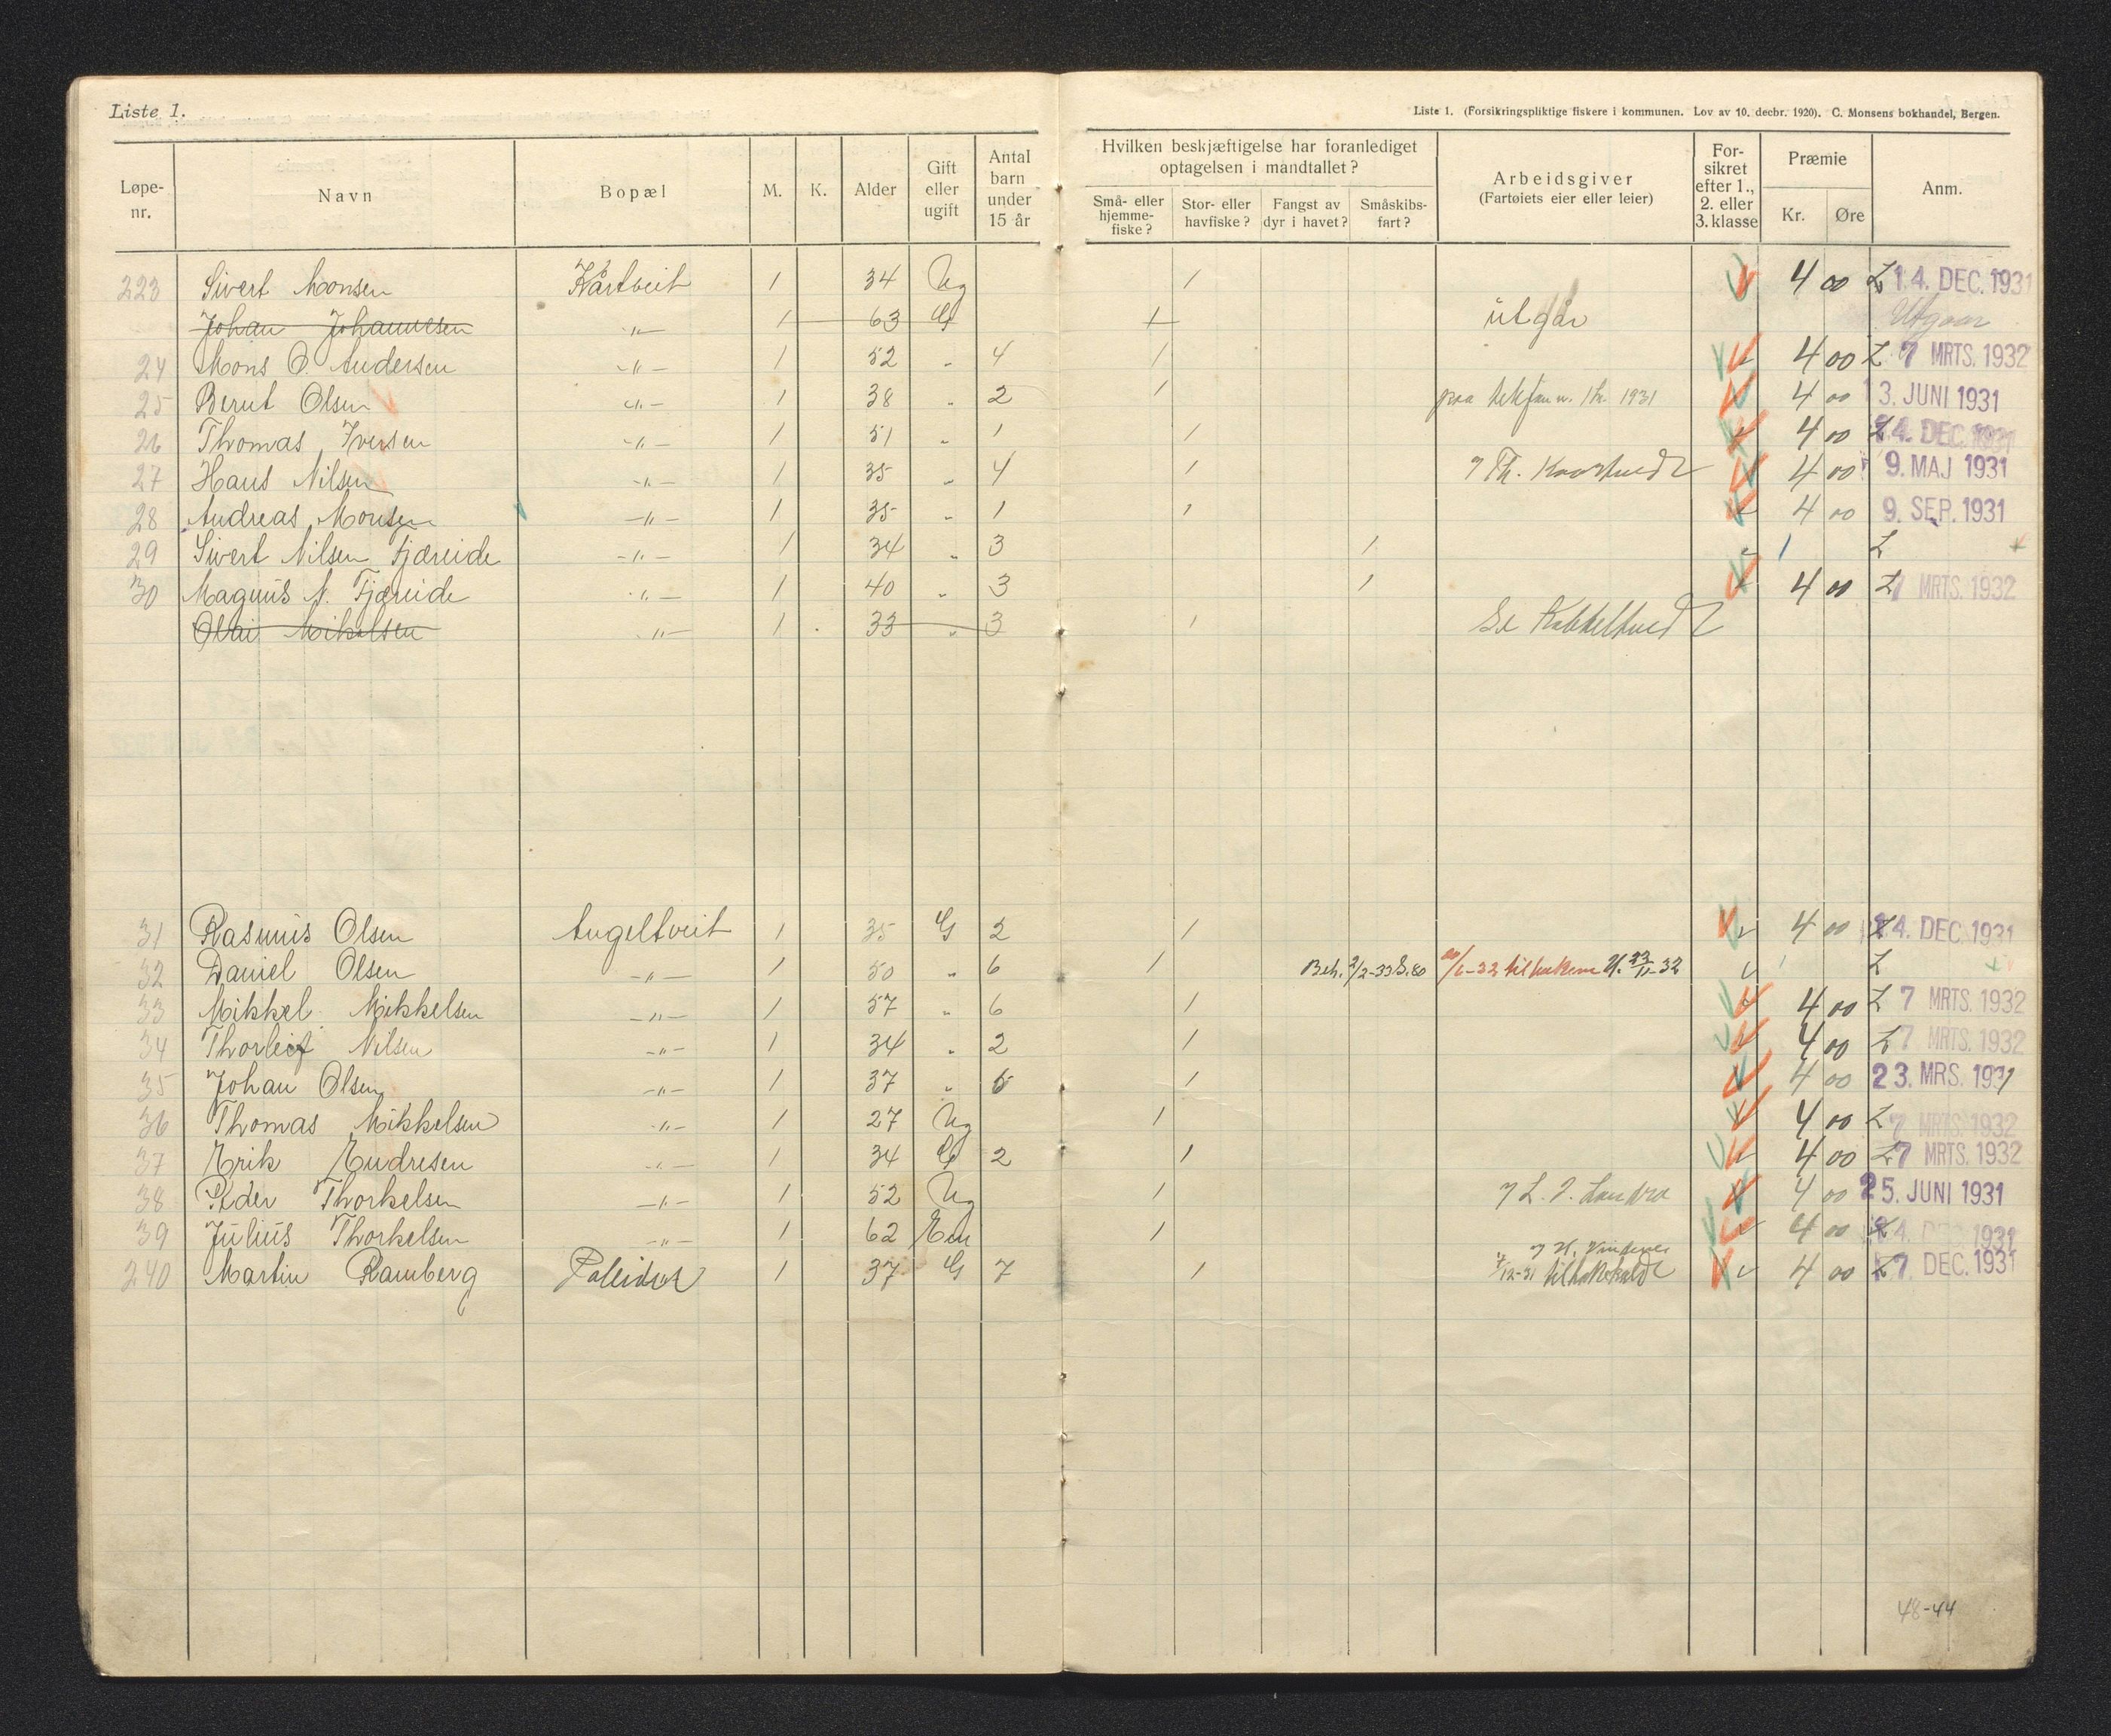 Liste 1.
Liste 1. (Forsikringspliktige fiskere i kommunen. Lov av 10. decbr. 1920). C. Monsens bokhandel, Bergen.
Løpe-nr. Navn Bopæl M. K. Alder Gift eller ugift Antal barn under 15 år Hvilken beskjæftigelse har foranlediget optagelsen i mandtallet? Små- eller hjemme-fiske? Stor- eller havfiske? Fangst av dyr i havet? Småskibs-fart? Arbeidsgiver (Fartøiets eier eller leier) For-sikret efter 1., 2. eller 3. klasse Præmie Kr. Øre Anm.
223 Sivert Monsen Kårtveit 1 34 Ug 1 4 00 L 14. DEC. 1931
Johan Johannesen -"- 1 63 G 1 utgår Utgaar
24 Mons O. Andersen -"- 1 52 " 4 1 4 00 L 7 MRTS. 1932
25 Bernt Olsen -"- 1 38 " 2 1 1931 4 00 13. JUNI 1931
26 Thomas Iversen -"- 1 51 " 1 1 4 00 L 14. DEC. 1931
27 Hans Nilsen -"- 1 35 " 4 1 4 00 9. MAJ 1931
28 Andreas Monsen -"- 1 35 " 1 1 4 00 9. SEP. 1931
29 Sivert Nilsen Fjæreide -"- 1 34 " 3 1 1 L
30 Magnus N. Fjæreide -"- 1 40 " 3 1 4 00 L 7 MRTS. 1932
Olai Mikelsen -"- 1 33 " 3 1 Se
31 Rasmus Olsen Angeltveit 1 35 G 2 1 4 00 L 14. DEC. 1931
32 Daniel Olsen -"- 1 50 " 6 1 Beh. 2/2-33 S. 80 L
33 Mikkel Mikkelsen -"- 1 57 " 6 1 4 00 L 7 MRTS. 1932
34 Thorleif Nilsen -"- 1 34 " 2 1 4 00 L 7 MRTS. 1932
35 Johan Olsen -"- 1 37 " 6 1 4 00 23. MRS. 1931
36 Thomas Mikkelsen -"- 1 27 Ug 1 4 00 L 7 MRTS. 1932
37 Erik Endresen -"- 1 34 G 2 1 4 00 L 7 MRTS. 1932
38 Peder Thorkelsen -"- 1 52 Ug 1 4 00 25. JUNI 1931
39 Julius Thorkelsen -"- 1 62 Em 1 4 00 14. DEC. 1931
240 Martin Ramberg 1 37 G 7 1 4 00 L 17. DEC. 1931
48-44